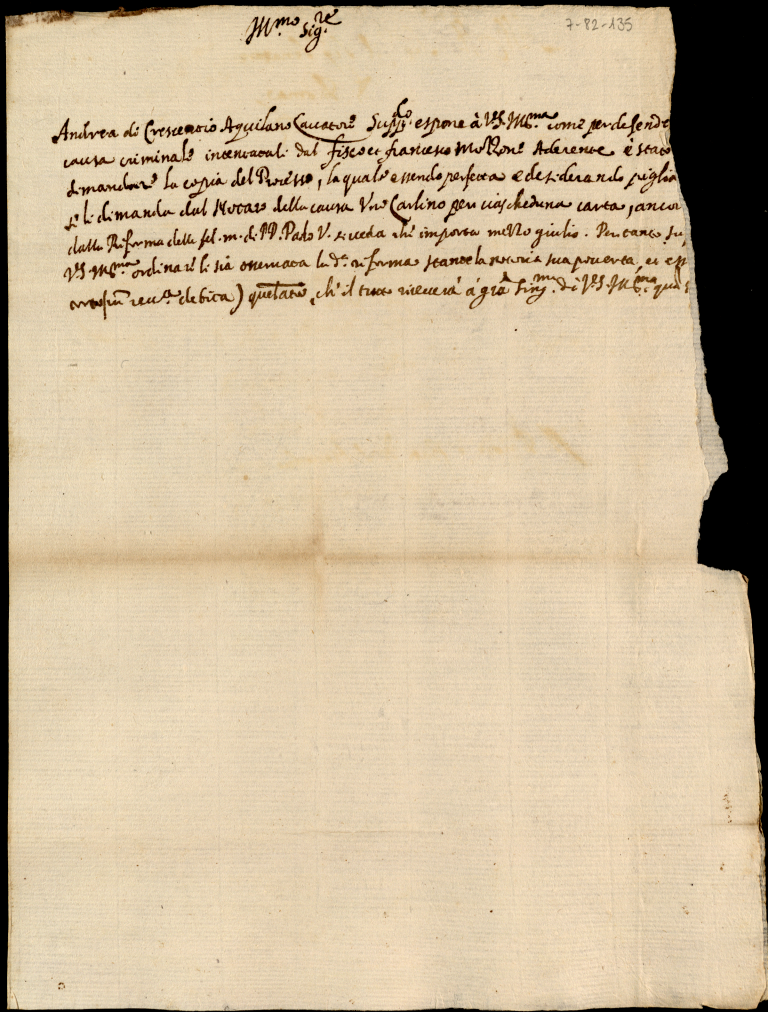 Ill.mo Sig.re
7-82-135
Andrea di Crescentio Aquilano Cavatore Supp.te espone à V.S. Ill.ma come per defende
causa criminale intentatali dal fisco et francesco Aderente è stato
dimandare la copia del Processo, la quale essendo perfetta e desiderando piglia
se li dimanda dal Notaro della causa Un Carlino per ciascheduna carta, ancor
dalla Riforma della fel. m. di PP. Paolo V. si veda che importa mezzo giulio. Per tanto su
V.S. Ill.ma ordinare li sia osservata la d.a riforma stante la notoria sua povertà, et esp
debita) che il tutto riceverà à gra sing.ma di V.S. Ill.ma qua